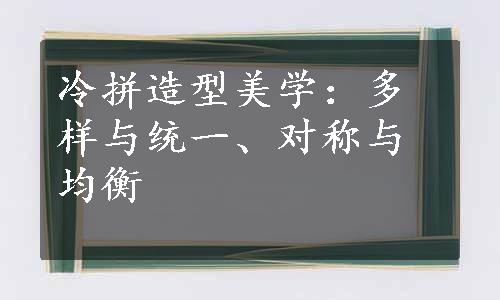 冷拼造型美学：多
样与统一、对称与
均衡